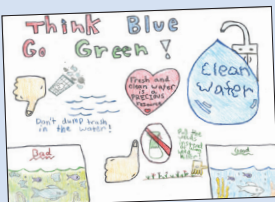 Think Blue
Go Green!
Fresh and
clean water
is a
PRECIOUS
resource
Clean
Water
Don't dump trash
in the water!
Bad
Good